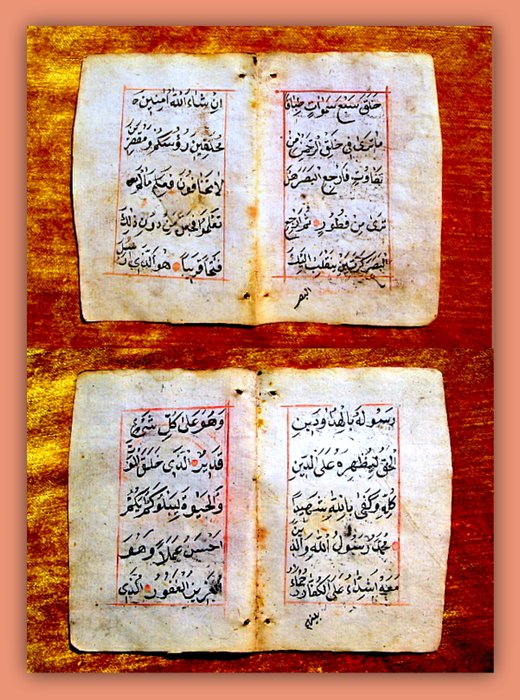 خلق سبع سموات طباقا
ما ترى في خلق الرحمن من
تفاوت فارجع البصر هل
ترى من فطور ثم ارجع
البصر كرتين ينقلب اليك
البصر
ان شاء الله امنين
محلقين رؤسكم ومقصرين
لا تخافون فعلم ما لم
تعلموا فجعل من دون ذلك
فتحا قريبا هو الذي ارسل
رسوله بالهدى ودين
الحق ليظهره على الدين
كله وكفى بالله شهيدا
محمد رسول الله والذين
معه اشداء على الكفار رحماء
بينهم
وهو على كل شيء
قدير الذي خلق الموت
والحيوة ليبلوكم ايكم
احسن عملا وهو
العزيز الغفور الذي